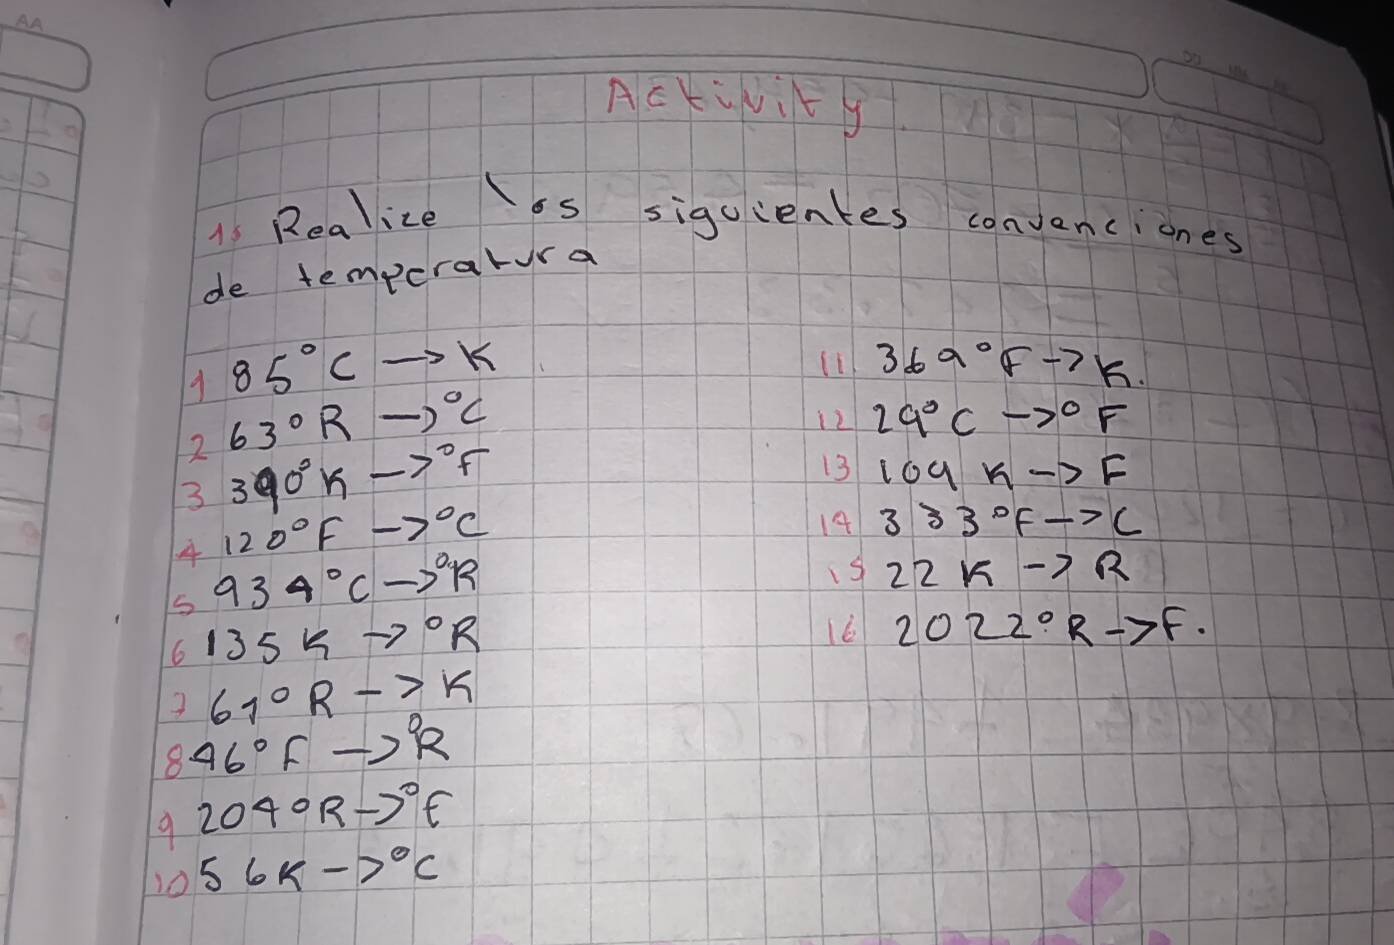 AA
Activity
1s Realize los siguientes convenciones
de temperatura
1 85°C → K
2 63°R → °C
3 390°K → °F
4 120°F → °C
5 934°C → °R
6 135 K → °R
7 61°R → K
8 46°F → °R
9 204°R → °F
10 56K → °C
11 369°F → K.
12 29°C → °F
13 109 K → F
14 333°F → C
15 22 K → R
16 2022°R → F.